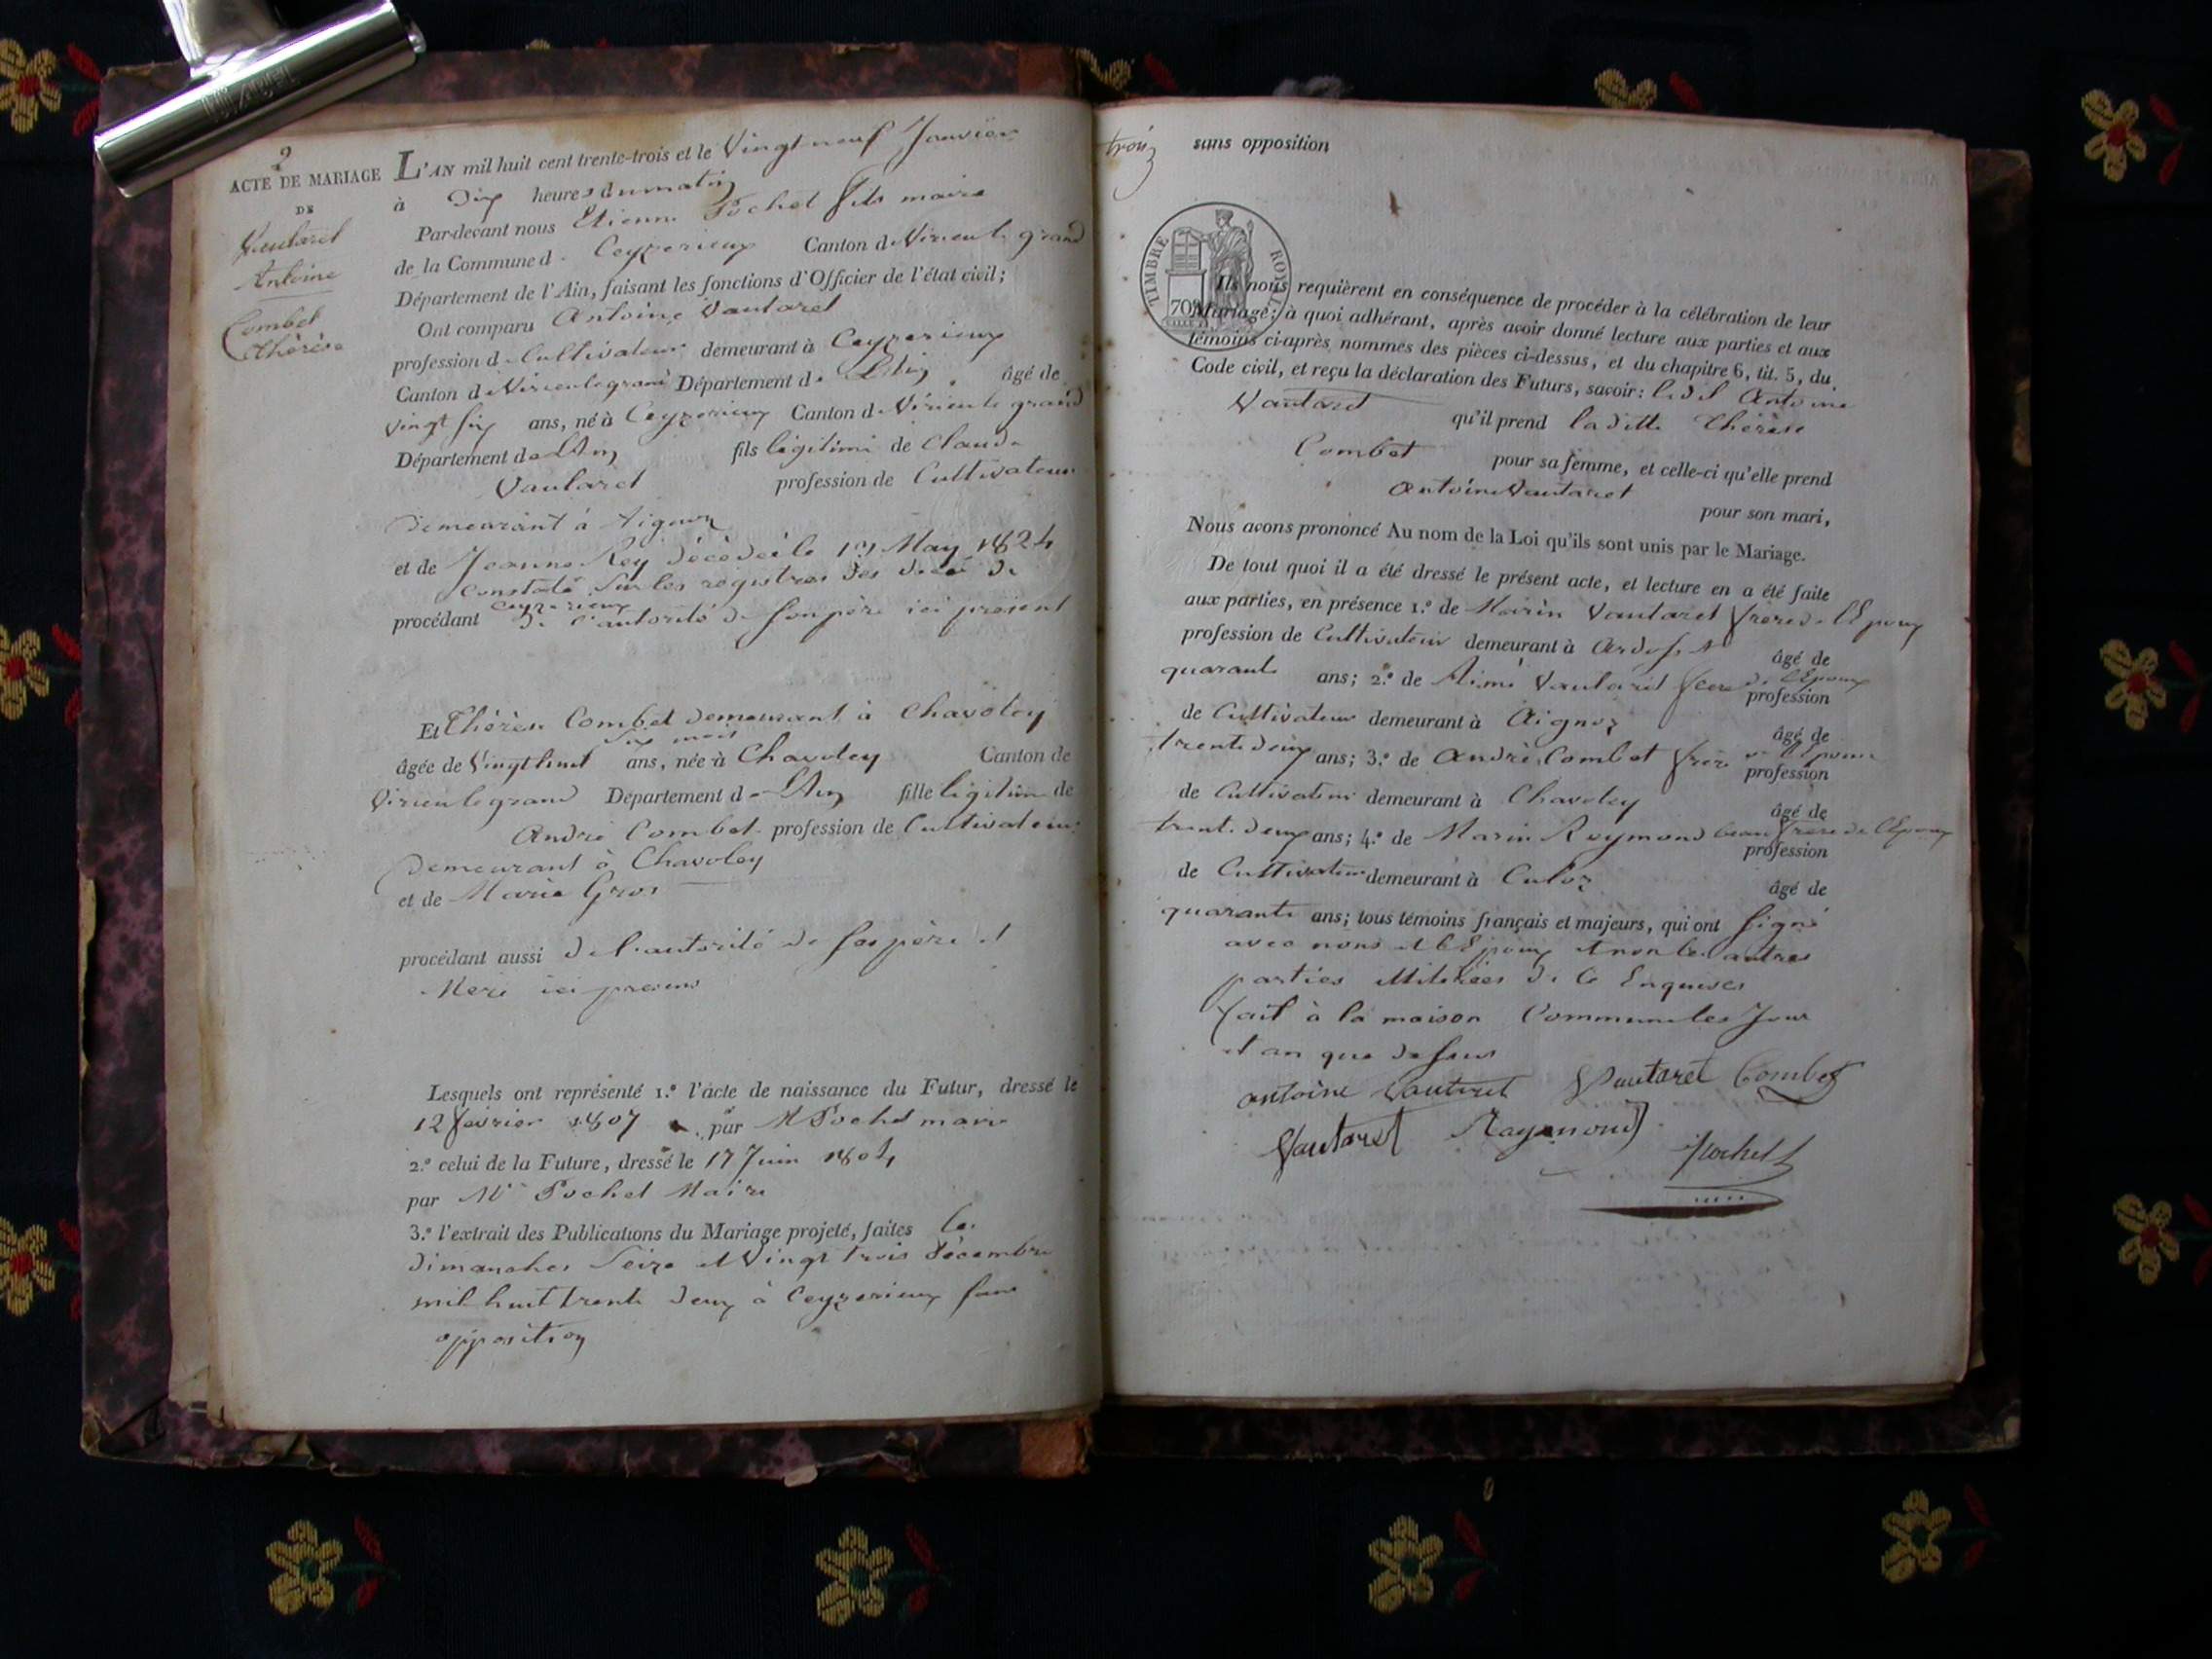 2
ACTE DE MARIAGE
DE
Vautaret
Antoine
Combet
Thérèse
L'AN mil huit cent trente-trois et le Vingt neuf Janvier
à Dix heures du matin
Par-devant nous Etienne Pochet fils maire
de la Commune d Ceyzerieux Canton d Virieu le grand
Département de l'Ain, faisant les fonctions d'Officier de l'état civil;
Ont comparu Antoine Vautaret
profession de Cultivateur demeurant à Ceyzerieux
Canton de Virieu le grand Département de L'Ain âgé de
vingt six ans, né à Ceyzerieux Canton d Virieu le grand
Département de L'Ain fils légitime de Claude
Vautaret profession de Cultivateur
demeurant à Aignoz
et de Jeanne Rey décédée le May 1824
constaté sur les registres des décès de
Ceyzerieux
procédant de l'autorité de son père ici présent
Et Thérèse Combet demeurant à Chavoley
six mois
âgée de Vingt huit ans, née à Chavoley Canton de
Virieu le grand Département de L'Ain fille légitime de
André Combet profession de Cultivateur
demeurant à Chavoley
et de Marie Gros
procédant aussi de l'autorité de ses père et
Mere ici presens
Lesquels ont représenté 1.º l'acte de naissance du Futur, dressé le
12 fevrier 1807 par M Pochet maire
2.º celui de la Future, dressé le 17 Juin 1804
par Mr Pochet Maire
3.º l'extrait des Publications du Mariage projeté, faites les
dimanches Seize et Vingt trois décembre
mil huit trente deux à Ceyzerieux sans
opposition
trois
sans opposition
TIMBRE ROYAL
70
Ils nous requièrent en conséquence de procéder à la célébration de leur
Mariage; à quoi adhérant, après avoir donné lecture aux parties et aux
témoins ci-après nommés des pièces ci-dessus, et du chapitre 6, tit. 5, du
Code civil, et reçu la déclaration des Futurs, savoir: le dit Antoine
Vautaret qu'il prend la ditte Thérèse
Combet pour sa femme, et celle-ci qu'elle prend
Antoine Vautaret pour son mari,
Nous avons prononcé Au nom de la Loi qu'ils sont unis par le Mariage.
De tout quoi il a été dressé le présent acte, et lecture en a été faite
aux parties, en présence 1.º de Marin Vautaret frère de l'Epoux
profession de Cultivateur demeurant à âgé de
quarante ans; 2.º de Aimé Vautaret frere de l'Epoux profession
de Cultivateur demeurant à Aignoz âgé de
trente deux ans; 3.º de André Combet frère de l'Epouse profession
de Cultivateur demeurant à Chavoley âgé de
trente deux ans; 4.º de Marin Reymond beau frere de l'Epoux profession
de Cultivateur demeurant à Culoz âgé de
quarante ans; tous témoins français et majeurs, qui ont signé
avec nous et l'Epoux et non les autres
parties illitérées de ce Enquises
fait à la maison Commune les Jour
et an que dessus
antoine vautaret Vautaret Combet
Vautaret Raymond
Pochet